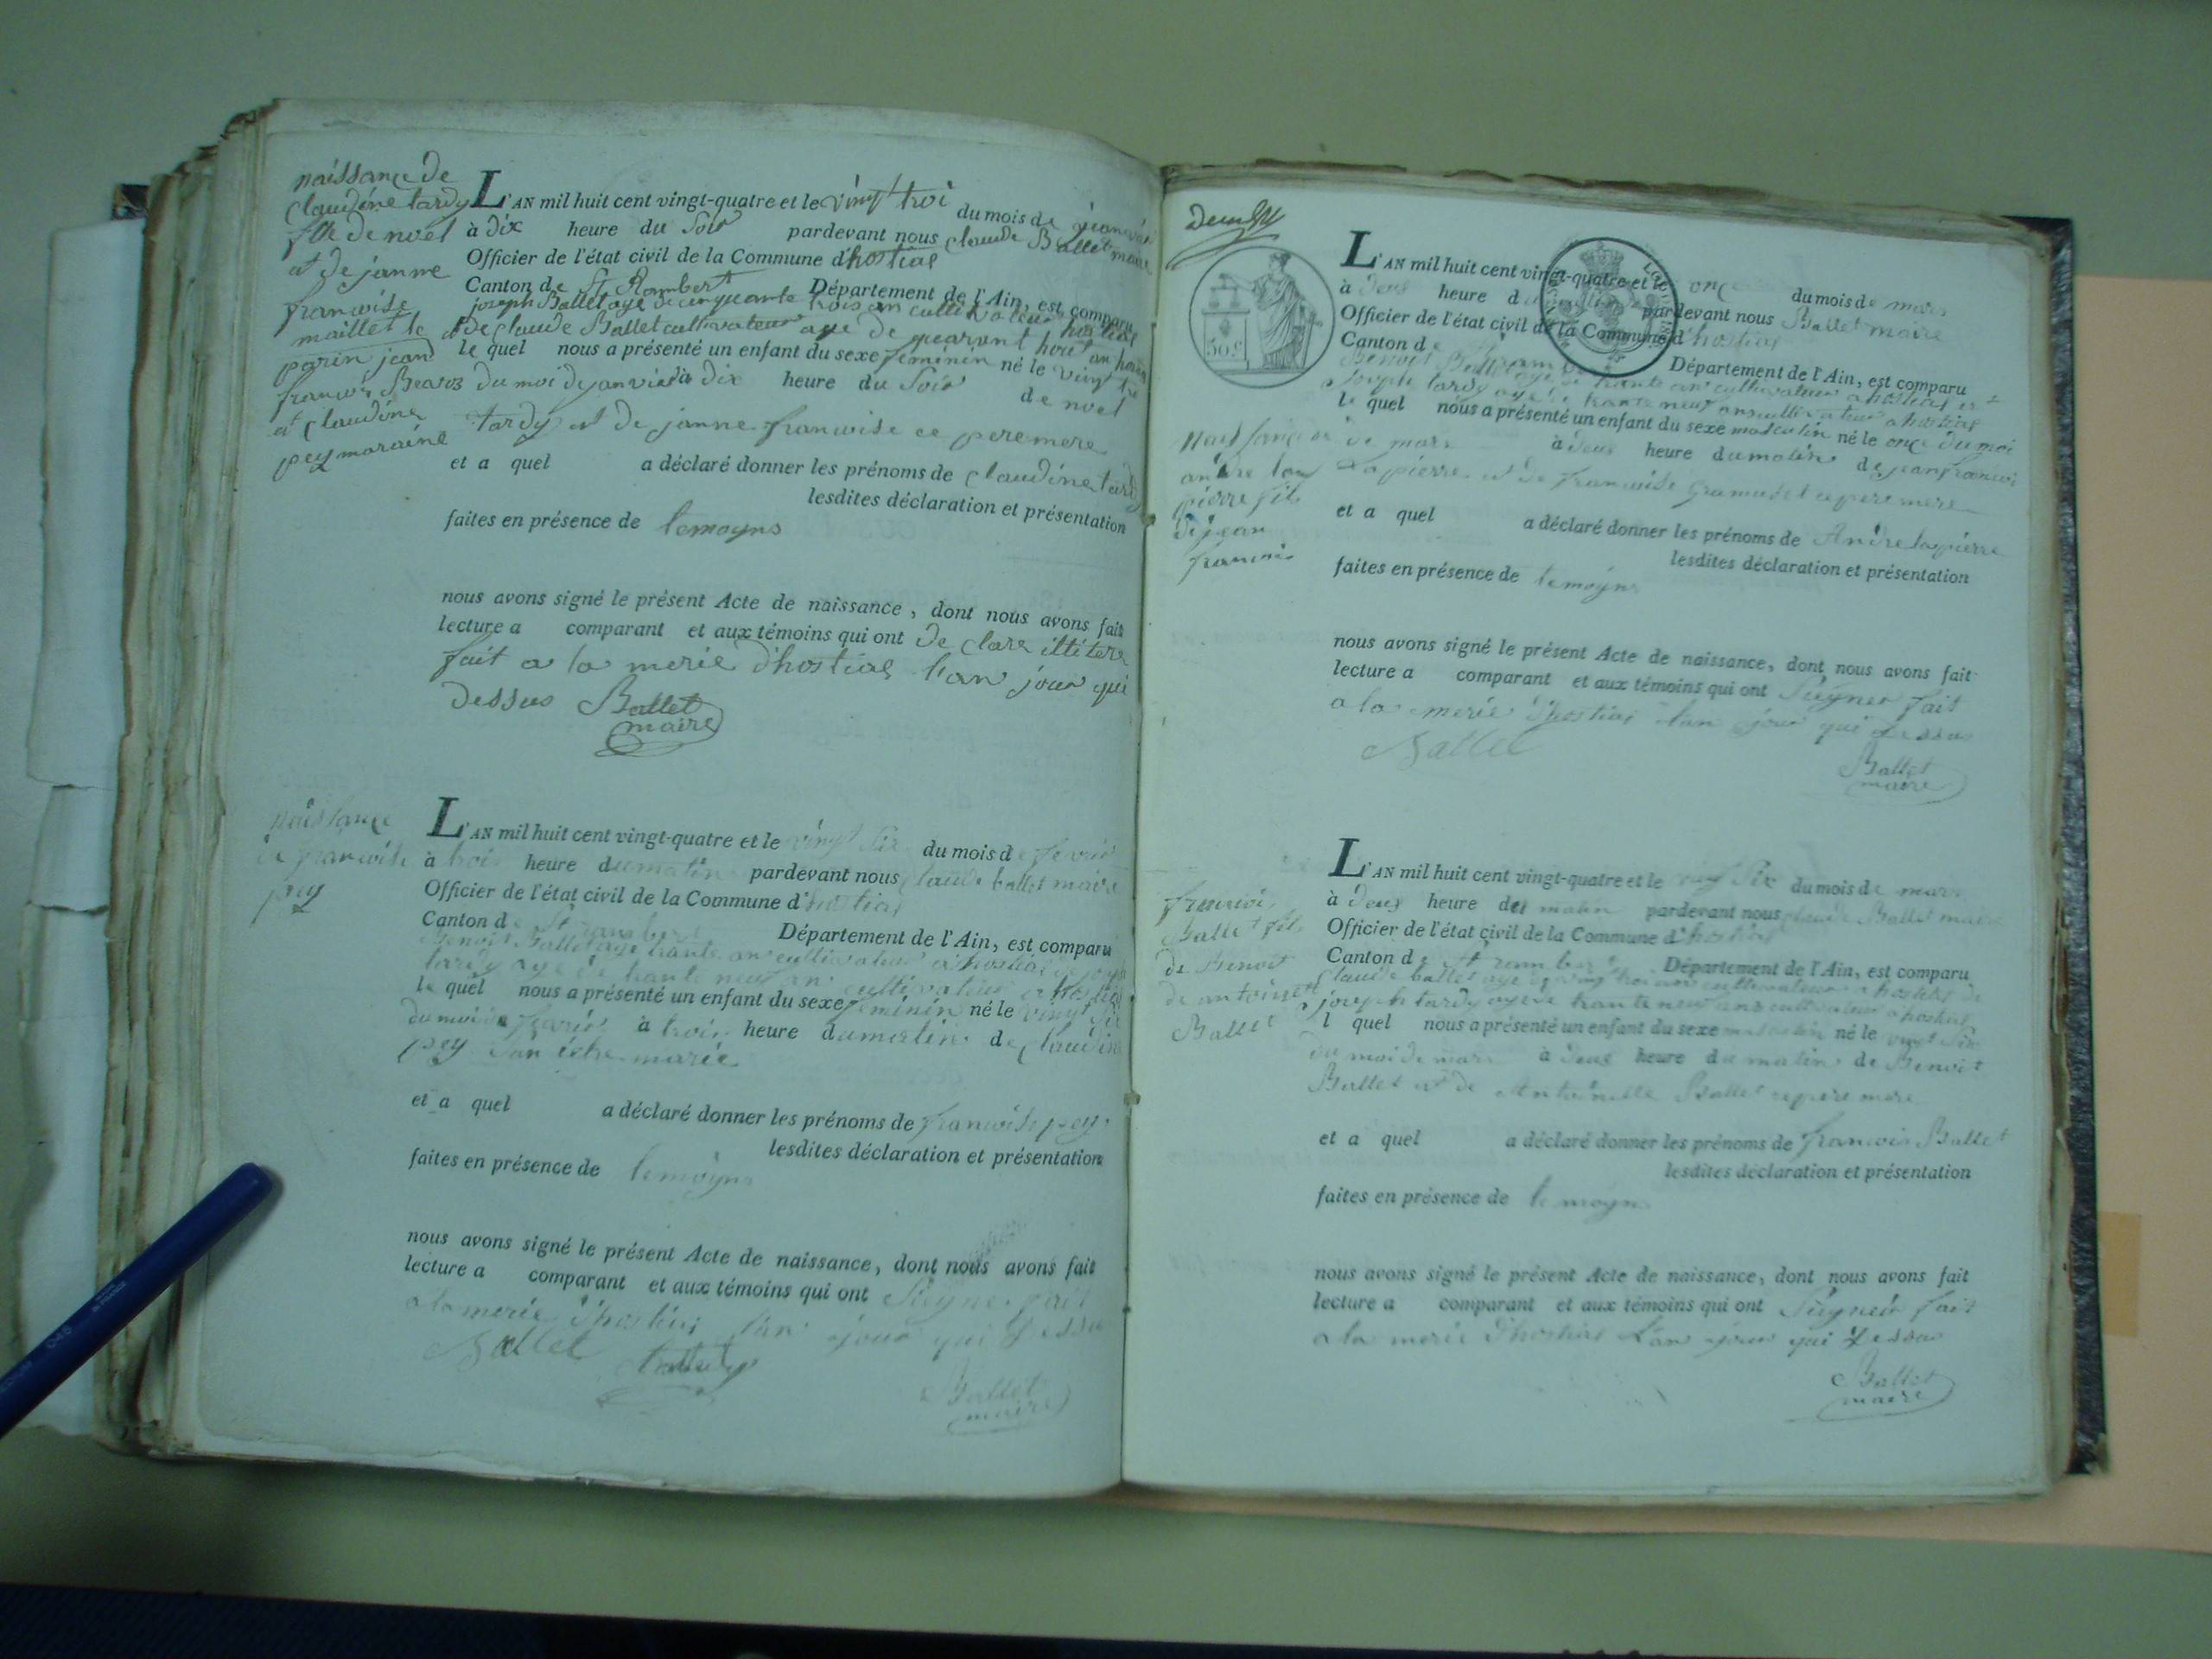 naissance de
Claudine tardy
fille de noel
et de janne
francoise
maillet le
parin jean
francois
et claudine
pey maraine
L'AN mil huit cent vingt-quatre et le vingt troi du mois de janvier
à dix heure du Soir pardevant nous Claude Ballet maire
Officier de l'état civil de la Commune d'hostias
Canton de St Rambert Département de l'Ain, est comparu
joseph Ballet age de cinquante trois an cultivateur hostias
et de claude Ballet cultivateur age de quarant huit an
le quel nous a présenté un enfant du sexe feminin né le vingt
du moi de janvier à dix heure du Soir de noel
tardy et de janne francoise ce pere mere
et a quel a déclaré donner les prénoms de Claudine tardy
lesdites déclaration et présentation
faites en présence de temoyns
nous avons signé le présent Acte de naissance, dont nous avons fait
lecture a comparant et aux témoins qui ont de clare illitere
fait a la merie d'hostias l'an jour qui
dessus Ballet
maire
naissance
de francoise
pey
L'AN mil huit cent vingt-quatre et le vingt Six du mois de fevrie
à trois heure du matin pardevant nous Claude ballet maire
Officier de l'état civil de la Commune d'hostias
Canton de St rambert Département de l'Ain, est comparu
Benoit Ballet age trante an cultivateur a hostias
tardy age de trante neuf an cultivateur a hostias
le quel nous a présenté un enfant du sexe feminin né le vingt Six
du moi de fevrie à trois heure du matin de Claudine
pey San etre marie
et a quel a déclaré donner les prénoms de francoise pey
lesdites déclaration et présentation
faites en présence de temoyns
nous avons signé le présent Acte de naissance, dont nous avons fait
lecture a comparant et aux témoins qui ont Siegner fait
a la merie d'hostias l'an jour qui dessu
Ballet tardy
Ballet
maire
50 c
naissance de
andre la
pierre fils
de jean
francois
L'AN mil huit cent vingt-quatre et le onze du mois de mars
à deus heure du matin pardevant nous Ballet maire
Officier de l'état civil de la Commune d'hostias
Canton de Département de l'Ain, est comparu
Benoit Ballet age de trante an cultivateur a hostias et
Joseph tardy age de trante neuf an cultivateur a hostias
le quel nous a présenté un enfant du sexe masculin né le onze du moi
de mars à deus heure du matin de jean francoi
la pierre et de francoise ce pere mere
et a quel a déclaré donner les prénoms de Andre lapierre
lesdites déclaration et présentation
faites en présence de temoyns
nous avons signé le présent Acte de naissance, dont nous avons fait
lecture a comparant et aux témoins qui ont Siegner fait
a la merie d'hostias l'an jour qui dessus
Ballet
Ballet
maire
francois
Ballet fils
de Benoit
de antoinette
Ballet
L'AN mil huit cent vingt-quatre et le vingt Six du mois de mars
à deus heure du matin pardevant nous claude Ballet maire
Officier de l'état civil de la Commune d'hostias
Canton de St rambert Département de l'Ain, est comparu
Claude ballet age de cultivateur a hostias de
joseph tardy age de trante neuf ans cultivateur a hostias
l quel nous a présenté un enfant du sexe masculin né le vingt Six
du moi de mars à deus heure du matin de Benoit
Ballet et de Antoinette Ballet ce pere mere
et a quel a déclaré donner les prénoms de francois Ballet
lesdites déclaration et présentation
faites en présence de temoyns
nous avons signé le présent Acte de naissance, dont nous avons fait
lecture a comparant et aux témoins qui ont Siegner fait
a la merie d'hostias L'an jour qui dessus
Ballet
maire